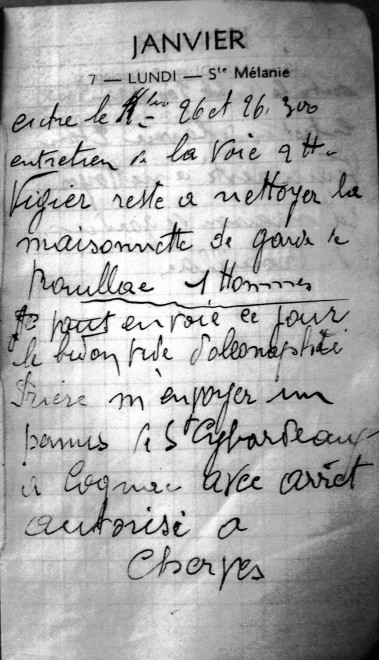 JANVIER
7 — LUNDI — Ste Mélanie
entre le Klm 26 et 26.300
entretien de la voie 2 H.
Vigier reste a nettoyer la
maisonnette de garde de
Rouillac 1 Hommes
Je envoie ce jour
le bidon vide
Prière m'envoyer un
permis de St Cybardeaux
à Cognac avec arrêt
autorisé a
Cherves